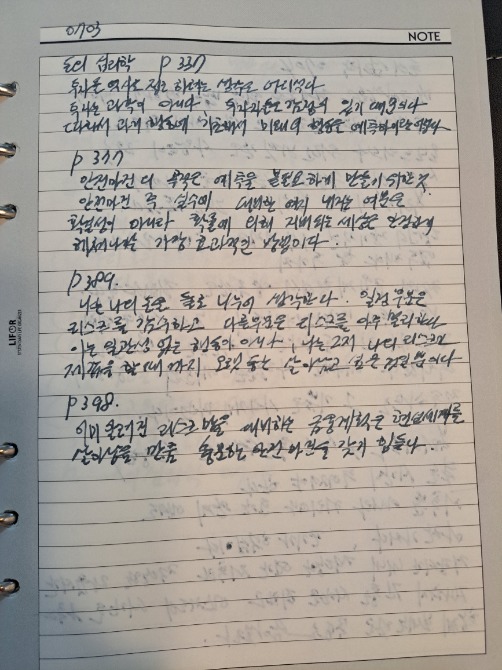 0703
NOTE
돈의 심리학 P 337
투자를 역사로 접근하려는 실수는 어리석다
투자는 과학이 아니다 투자자들은 감정이 있기 때문이다
따라서 과거 행동에 기초해서 미래의 행동을 예측하기란 어렵다
P 377
안전마진의 목적은 예측을 불필요하게 만들기 위한 것
안전마진 즉 실수에 대비한 여지 내지는 여분은
확실성이 아니라 확률에 의해 지배되는 세상을 안전하게
헤쳐나가는 가장 효과적인 방법이다.
P 389.
나는 나의 돈을 둘로 나누어 생각한다. 일정부분은
리스크를 감수하고 다른부분은 리스크를 아주 분리한다
이는 일관성 없는 행동이 아니다 나는 그저 나의 리스크가
제 몫을 할 때까지 오랫동안 살아남고 싶은 것일 뿐이다
P 398.
이미 알려진 리스크만을 대비하는 금융계획은 현실세계를
살아남을 만큼 충분한 안전마진을 갖기 힘들다.
LIFOR